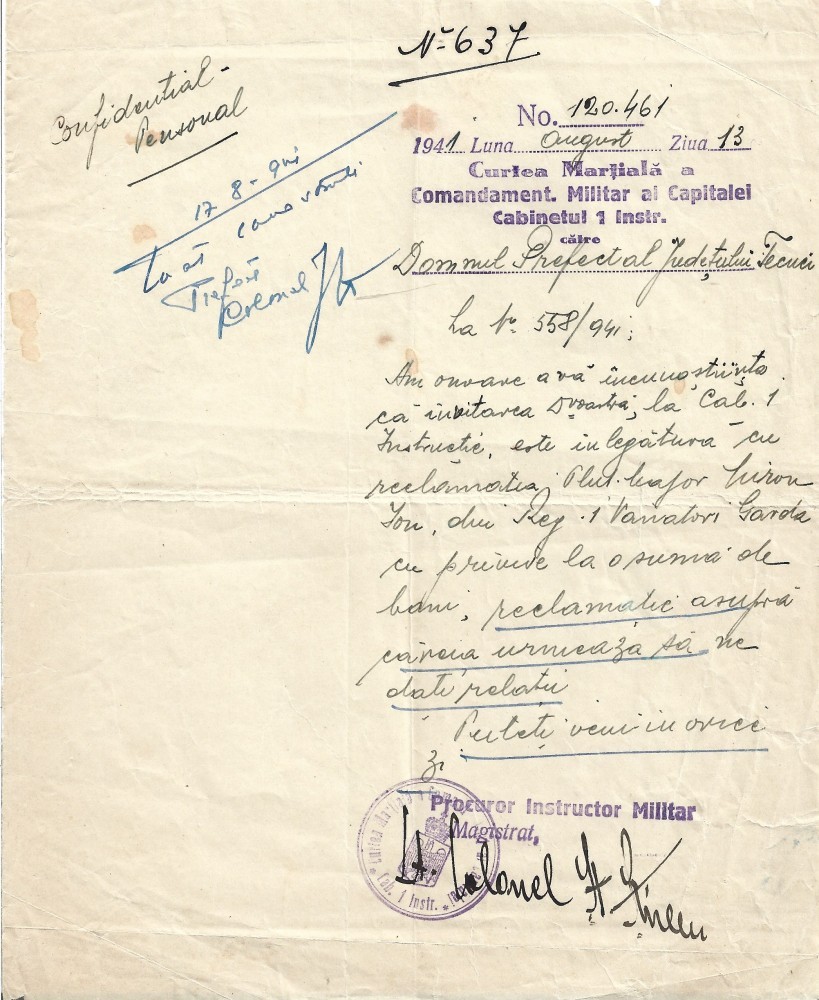 No 637
Confidential -
Personal
No. 120.461
1941 Luna August Ziua 13
Curtea Marțială a
Comandament. Militar al Capitalei
Cabinetul 1 Instr.
către
Domnul Prefect al Județului Tecuci
17 8 - 941
Colonel
La No 558/941;
Am onoare a vă încunoștiința
că invitarea Dvoastră, la Cab. 1
Instrucție, este in legătură cu
reclamația Plut. Major Miron
Ion, din Reg. 1 Vanatori Garda
cu privire la o sumă de
bani, reclamație asupra
căreia urmează să ne
dați relații
Puteți veni in orice
zi
Procuror Instructor Militar
Magistrat,
Lt. Colonel
Curtea Marțială a
Cab. 1 Instr.